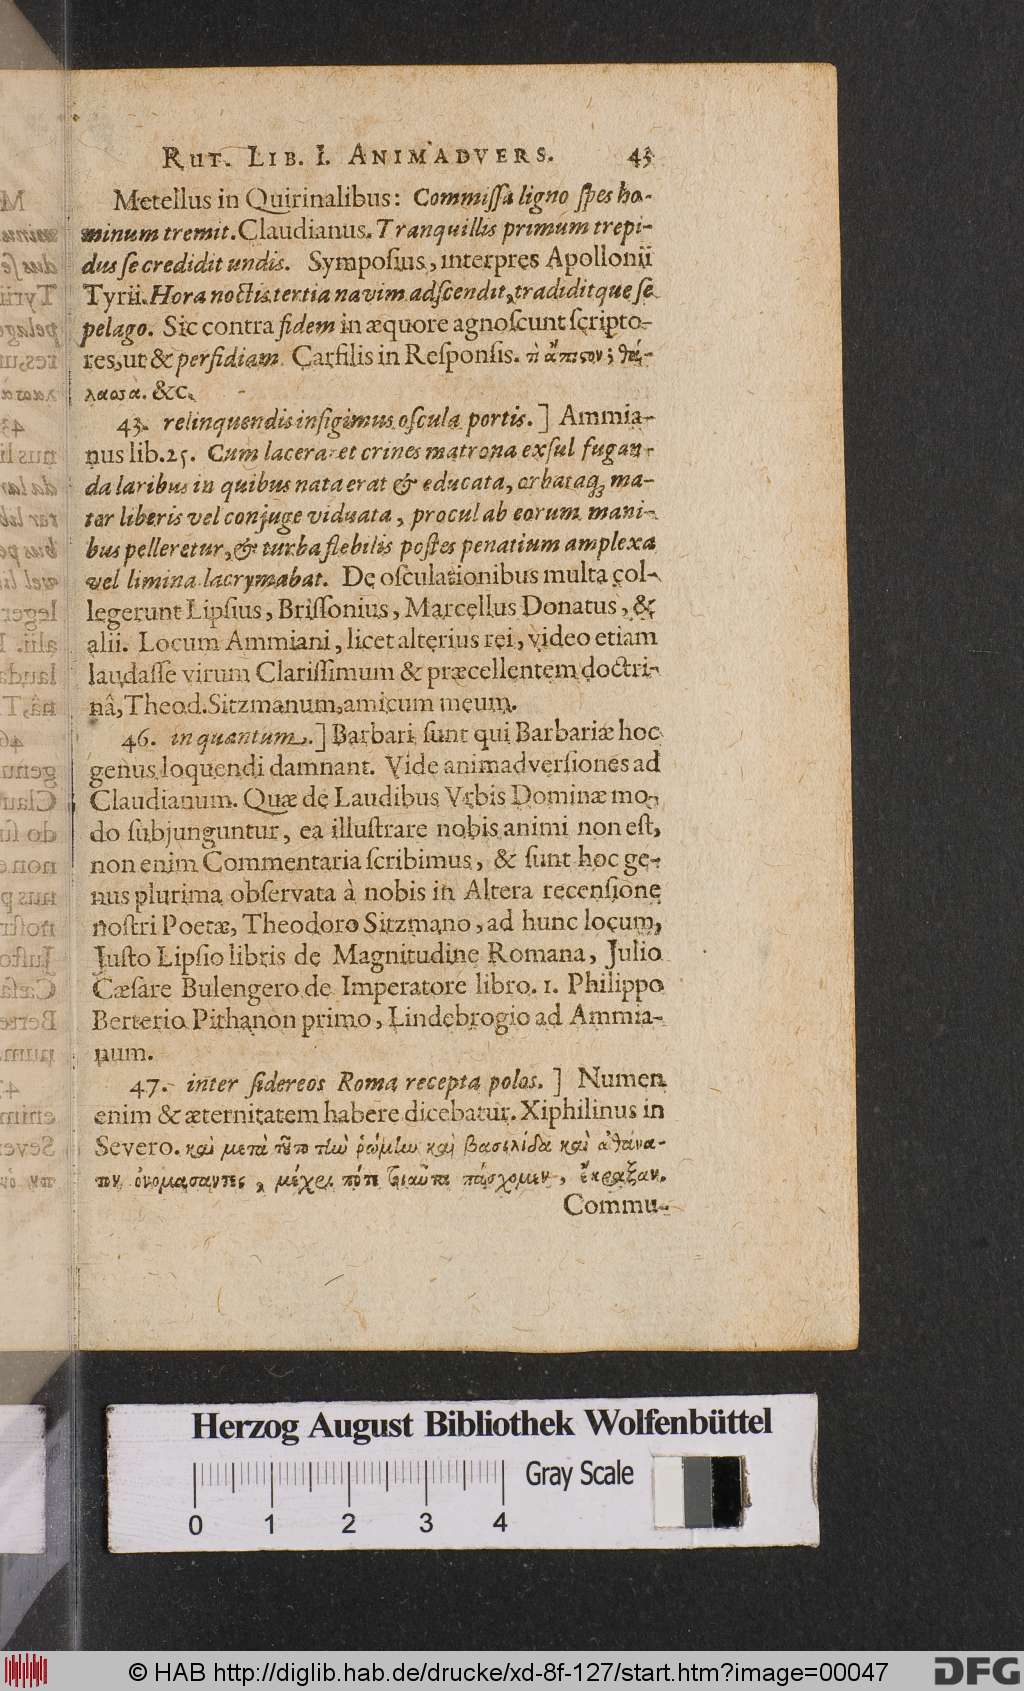 RUT. LIB. I. ANIMADVERS. 45
Metellus in Quirinalibus: Commiſſa ligno ſpes ho-
minum tremit. Claudianus. Tranquillis primùm trepi-
dus ſe credidit undis. Sympoſius, interpres Apollonii
Tyrii. Hora noctis tertia navim adſcendit, tradiditque ſe
pelago. Sic contra fidem in æquore agnoſcunt ſcripto-
res, ut & perfidiam. Carfilis in Reſponſis. τὶ ἄπιςον; θά-
λαοσα. &c.
43. relinquendis infigimus oſcula portis. ] Ammia-
nus lib. 25. Cum laceraret crines matrona exſul fugan-
da laribus in quibus nata erat & educata, orbataq; ma-
ter liberis vel conjuge viduata, procul ab eorum mani-
bus pelleretur, & turba flebilis poſtes penatium amplexa
vel limina lacrymabat. De oſculationibus multa col-
legerunt Lipſius, Briſſonius, Marcellus Donatus, &
alii. Locum Ammiani, licet alterius rei, video etiam
laudaſſe virum Clariſſimum & præcellentem doctri-
nâ, Theod. Sitzmanum, amicum meum.
46. in quantum. ] Barbari ſunt qui Barbariæ hoc
genus loquendi damnant. Vide animadverſiones ad
Claudianum. Quæ de Laudibus Vrbis Dominæ mo-
do ſubjunguntur, ea illuſtrare nobis animi non eſt,
non enim Commentaria ſcribimus, & ſunt hoc ge-
nus plurima obſervata à nobis in Altera recenſione
noſtri Poetæ, Theodoro Sitzmano, ad hunc locum,
Juſto Lipſio libris de Magnitudine Romana, Julio
Cæſare Bulengero de Imperatore libro. 1. Philippo
Berterio Pithanon primo, Lindebrogio ad Ammia-
num.
47. inter ſidereos Roma recepta polos. ] Numen
enim & æternitatem habere dicebatur. Xiphilinus in
Severo. καὶ μετὰ τῦτο τὴν ῥώμην καὶ βασιλίδα καὶ ἀθάνα-
τον ὀνομασαντες, μέχρι πότε τοιαῦτα πάσχομεν, ἔκραξαν.
Commu-
Herzog August Bibliothek Wolfenbüttel
Gray Scale
0 1 2 3 4
© HAB http://diglib.hab.de/drucke/xd-8f-127/start.htm?image=00047
DFG